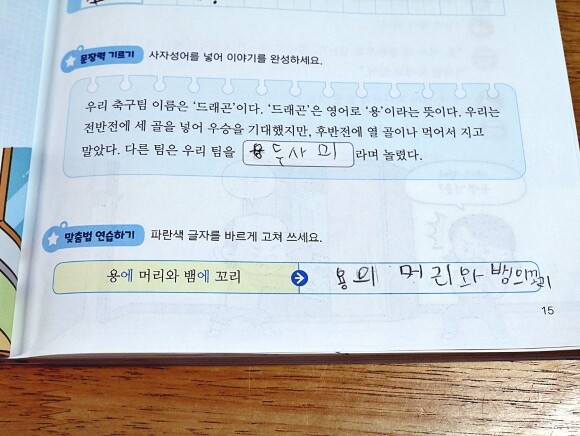 문장력 기르기 사자성어를 넣어 이야기를 완성하세요.
우리 축구팀 이름은 '드래곤'이다. '드래곤'은 영어로 '용'이라는 뜻이다. 우리는
전반전에 세 골을 넣어 우승을 기대했지만, 후반전에 열 골이나 먹어서 지고
말았다. 다른 팀은 우리 팀을 용두사미 라며 놀렸다.
맞춤법 연습하기 파란색 글자를 바르게 고쳐 쓰세요.
용에 머리와 뱀에 꼬리 용의 머리와 뱀의꼬리
15